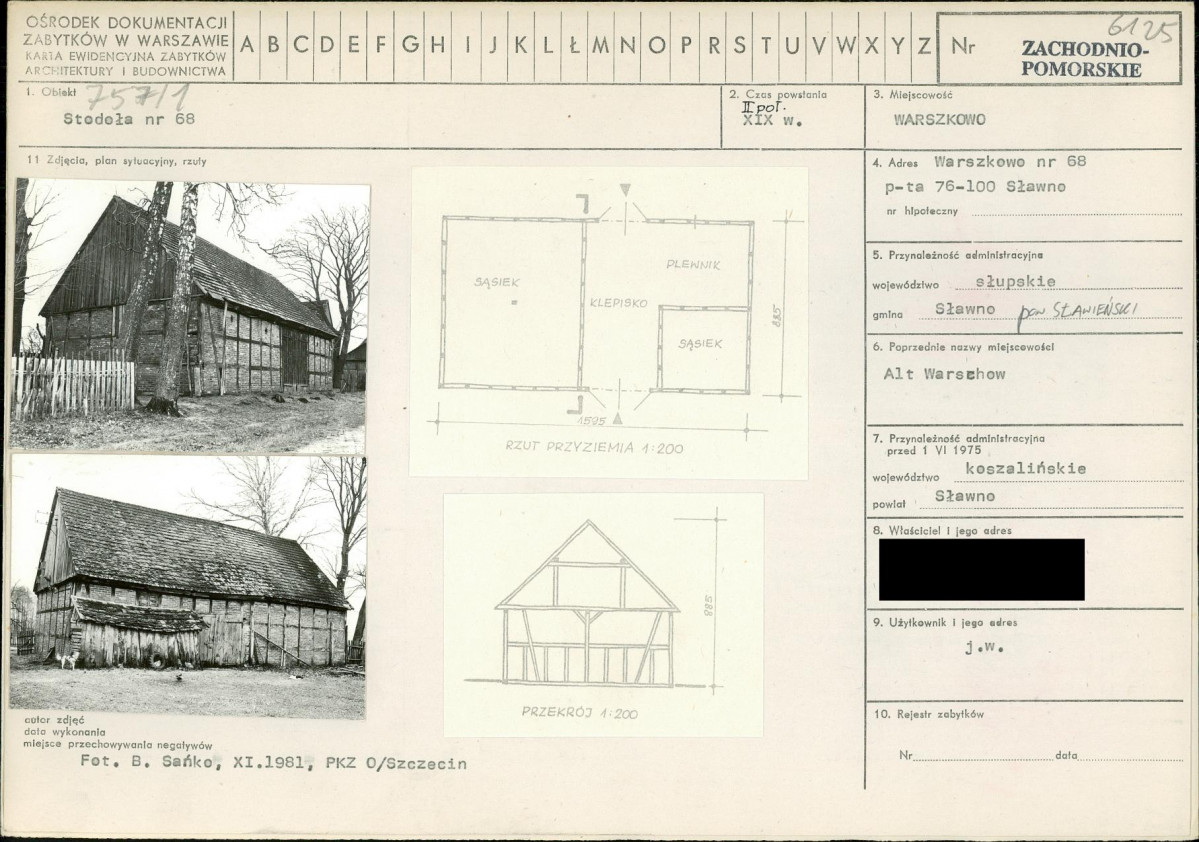 OŚRODEK DOKUMENTACJI
ZABYTKÓW W WARSZAWIE
KARTA EWIDENCYJNA ZABYTKÓW
ARCHITEKTURY I BUDOWNICTWA
A B C D E F G H I J K L Ł M N O P R S T U V W X Y Z
Nr
6125
ZACHODNIO-
POMORSKIE
1. Obiekt 757/1
Stodoła nr 68
2. Czas powstania
II poł.
XIX w.
3. Miejscowość
WARSZKOWO
11 Zdjęcia, plan sytuacyjny, rzuty
SĄSIEK
KLEPISKO
PLEWNIK
SĄSIEK
885
1595
RZUT PRZYZIEMIA 1:200
988
PRZEKRÓJ 1:200
4. Adres Warszkowo nr 68
p-ta 76-100 Sławno
nr hipoteczny
5. Przynależność administracyjna
województwo słupskie
gmina Sławno pow SŁAWIEŃSKI
6. Poprzednie nazwy miejscowości
Alt Warschow
7. Przynależność administracyjna
przed 1 VI 1975
województwo koszalińskie
powiat Sławno
8. Właściciel i jego adres
9. Użytkownik i jego adres
j.w.
10. Rejestr zabytków
Nr data
autor zdjęć
data wykonania
miejsce przechowywania negatywów
Fot. B. Sańko, XI.1981, PKZ O/Szczecin